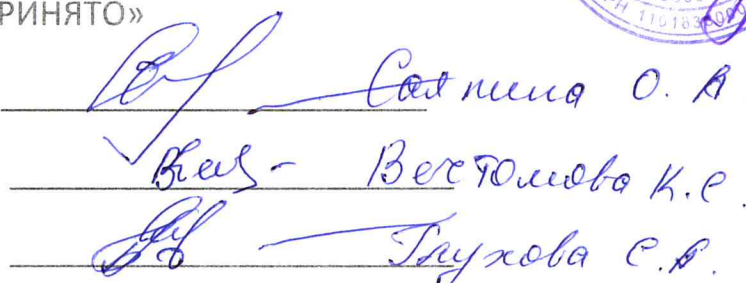 РИНЯТО»
Саяпина О. А
Вектомова К.С.
Глухова С.А.